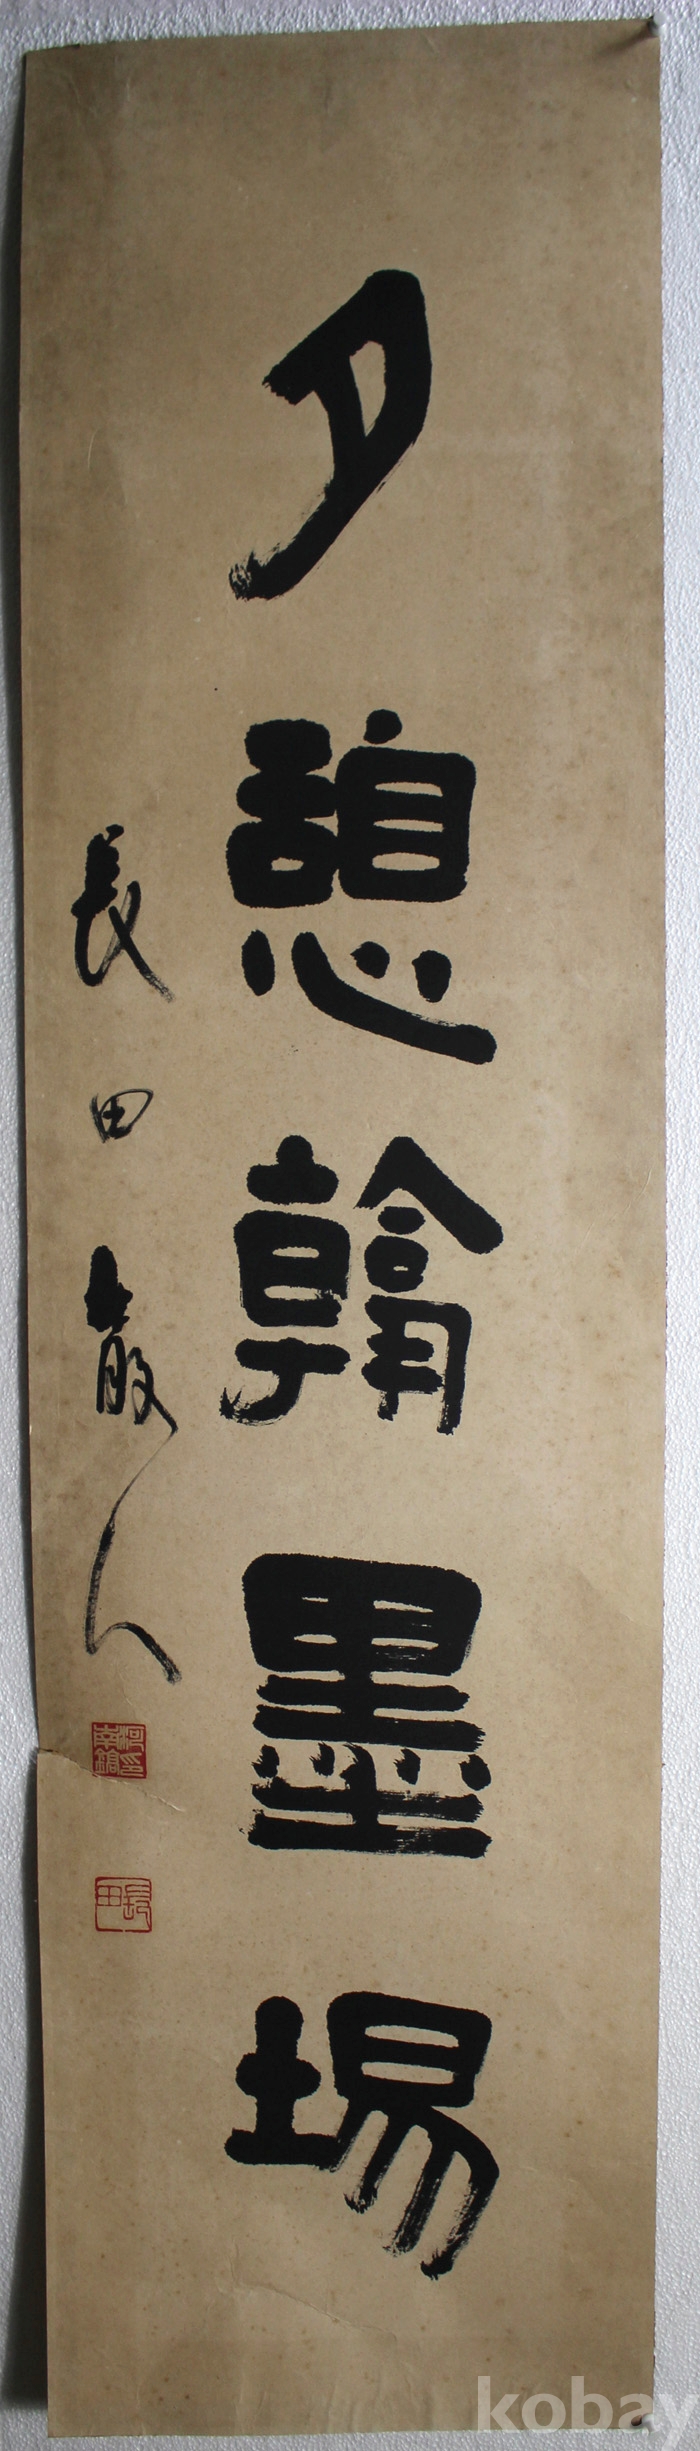 夕憩翰墨場
長田散人
長田
kobay